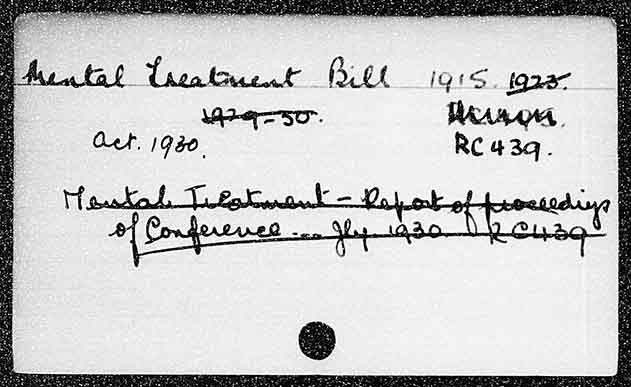 Mental Treatment Bill 1915. 1923.
1929-30.
Act. 1930. RC439.
Mental Treatment - Report of proceedings
of Conference ... Jly 1930 RC439